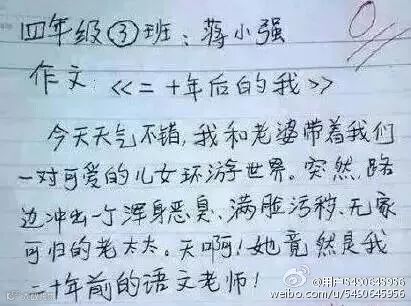 四年级③班：蒋小强
0
作文：《二十年后的我》
今天天气不错，我和老婆带着我们
一对可爱的儿女环游世界。突然，路
边冲出一个浑身恶臭、满脸污秽、无家
可归的老太太。天啊！她竟然是我
二十年前的语文老师！
@用户5490645956
weibo.com/u/5490645956